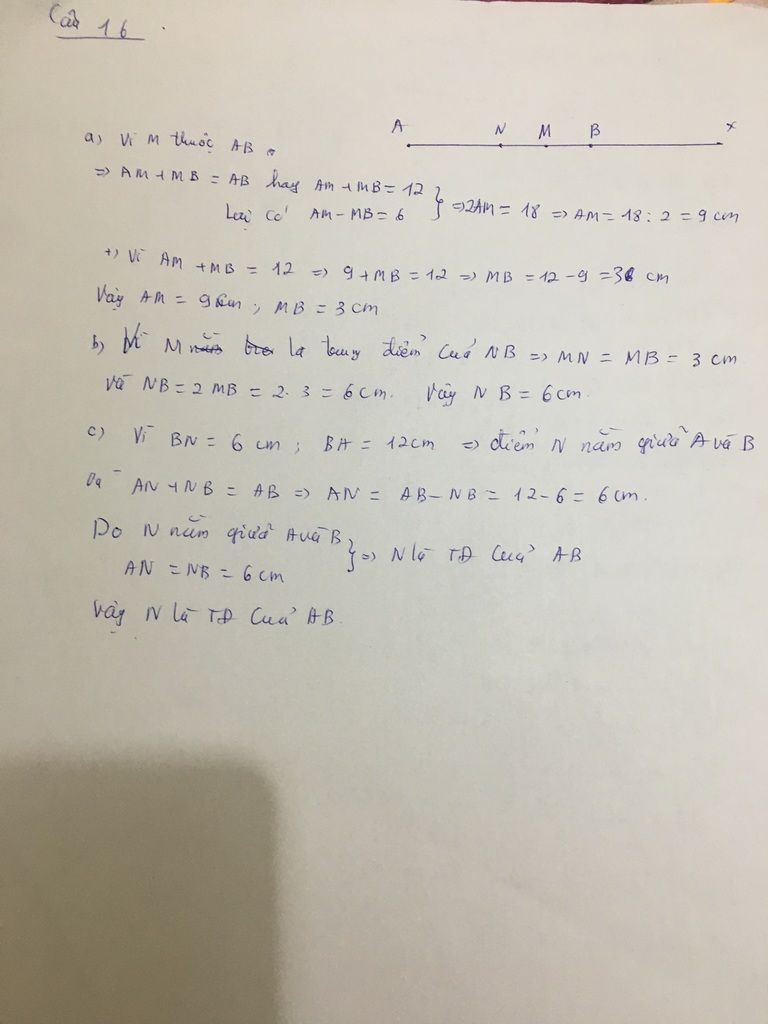 Câu 16.
A N M B x
a) Vì M thuộc AB.
=> AM + MB = AB hay AM + MB = 12
Lại có AM - MB = 6 } => 2AM = 18 => AM = 18 : 2 = 9 cm
+) Vì AM + MB = 12 => 9 + MB = 12 => MB = 12 - 9 = 3 cm
Vậy AM = 9 cm ; MB = 3 cm
b) Vì M là trung điểm của NB => MN = MB = 3 cm
và NB = 2 MB = 2. 3 = 6 cm. Vậy NB = 6 cm.
c) Vì BN = 6 cm ; BA = 12 cm => điểm N nằm giữa A và B
AN + NB = AB => AN = AB - NB = 12 - 6 = 6 cm.
Do N nằm giữa A và B
AN = NB = 6 cm } => N là TĐ của AB
Vậy N là TĐ của AB.